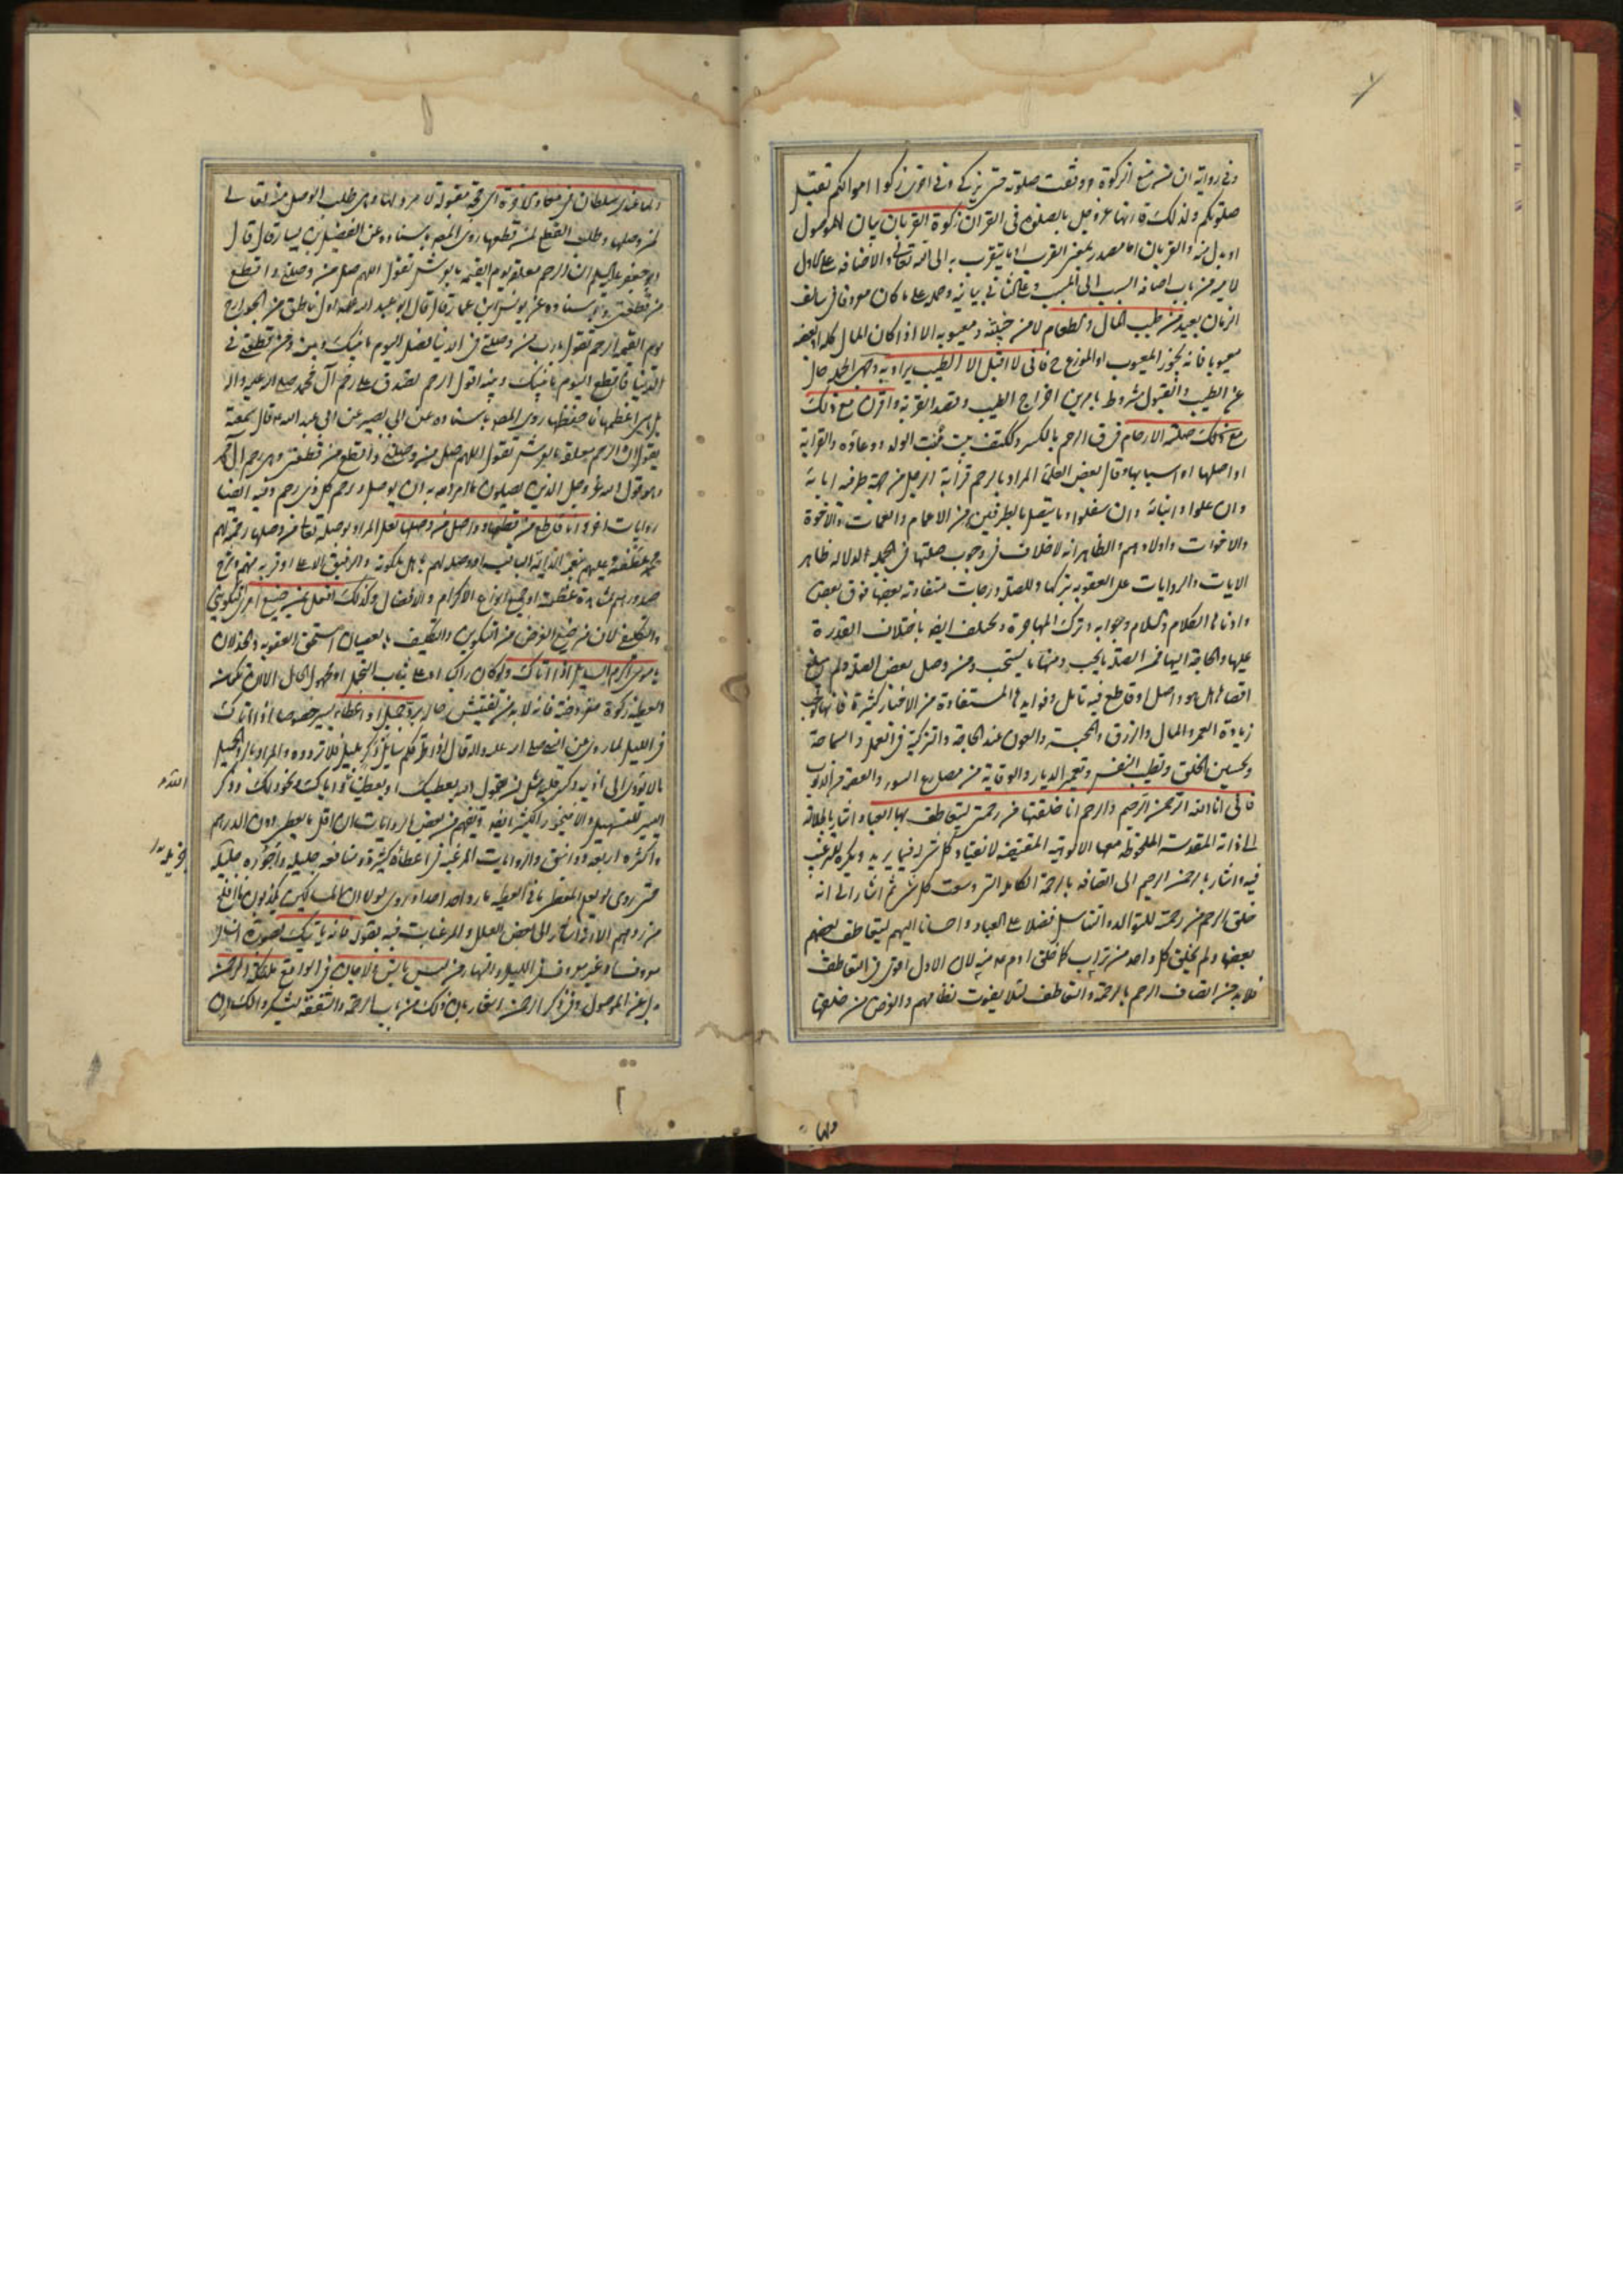 وفى رواية ان من منع الزكوة وقفت صلوته حتى يزكى وفى اخرى زكوا اموالكم تقبل
صلوتكم ولذلك قرنها عز وجل بالصلوة فى القران زكوة القربان بيان للموصول
او بدل منه والقربان اما مصدر بمعنى القرب او ما يتقرب به الى الله تعالى والاضافة على الاول
لامية من باب اضافة السبب الى المسبب وعلى الثانى بيانية وحمله على ما كان معروفا فى سالف
الزمان بعيد من طيب المال والطعام لا من خبيثه ومعيوبه الا اذا كان المال كله او بعضه
معيوبا فانه يجوز المعيوب او الموزع ح فانى لا اقبل الا الطيب يراد به وجهى الجملة حال
عن الطيب والقبول مشروط بامرين اخراج الطيب وقصد القربة واقرن مع ذلك
مع ذلك صلة الارحام فى ق الرحم بالكسر وككتف بيت منبت الولد ووعاؤه والقرابة
او اصلها او اسبابها وقال بعض العلماء المراد بالرحم قرابة الرجل من جهة طرفيه ابائه
وان علوا وابنائه وان سفلوا وما يتصل بالطرفين من الاعمام والعمات والاخوة
والاخوات واولادهم والظاهر انه لا خلاف فى وجوب صلتها فى الجملة لدلالة ظاهر
الايات والروايات على العقوبة بتركها وللصلة درجات متفاوتة بعضها فوق بعض
وادناها الكلام والسلام وجوابه وترك المهاجرة ويختلف ايضا باختلاف القدرة
عليها والحاجة اليها فمن الصلة ما يجب ومنها ما يستحب ومن وصل بعض الصلة ولم يبلغ
اقصاها هل هو واصل او قاطع فيه تامل وفوايدها المستفادة من الاخبار كثيرة فانها توجب
زيادة العمر والمال والرزق والمحبة والعون عند الحاجة والتزكية فى العمل والسماحة
وتحسين الخلق وتطيب النفس وتعمير الديار والوقاية من مصارع السوء والعصمة من الذنوب
فانى انا الله الرحمن الرحيم والرحم انا خلقتها من رحمتى ليتعاطف بها العباد اشار بالجلالة
الى ذاته المقدسة الملحوظة معها الالوهية المقتضية لانقياد كل شىء له فيما يريد ويكره للترغيب
فيه واشار بالرحمن الرحيم الى اتصافه بالرحمة الكاملة التى وسعت كل شىء ثم اشار الى انه
خلق الرحم من رحمته للتوالد والتناسل تفضلا على العباد واحسانا اليهم ليتعاطف بعضهم
بعضا ولم يخلق كل واحد من تراب كما خلق ادم منه لان الاول اقوى فى التعاطف
فلا بد من اتصاف الرحم بالرحمة والتعاطف لئلا يفوت نظامهم والغرض من خلقها
ولها
ولها عندى سلطان فى معاد الاخرة اى حجة مقبولة لا مرد لها وهى طلب الوصل منه تعالى
لمن وصلها وطلب القطع لمن قطعها روى المصنف باسناده عن الفضيل بن يسار قال قال
ابو جعفر عليه السلام ان الرحم معلقة يوم القيمة بالعرش تقول اللهم صل من وصلنى واقطع
من قطعنى وباسناده عن يونس بن عمار قال قال ابو عبد الله ع اول ناطق من الجوارح
يوم القيمة الرحم تقول يا رب من وصلنى فى الدنيا فصل اليوم ما بينك وبينه ومن قطعنى فى
الدنيا فاقطع اليوم ما بينك وبينه اقول الرحم يصدق على رحم آل محمد صلى الله عليه واله
بل هى اعظمها حفظها روى المصنف باسناده عن ابى بصير عن ابى عبد الله ع قال سمعته
يقول ان الرحم معلقة بالعرش تقول اللهم صل من وصلنى واقطع من قطعنى وهى رحم آل محمد
وهو قول الله عز وجل الذين يصلون ما امر الله به ان يوصل ورحم كل ذى رحم وفيه ايضا
روايات اخر وانا قاطع من قطعها وواصل من وصلها لعل المراد بوصله تعالى من وصلها رحمته لهم
وعطفه عليهم بنعمه
صدورهم لمشاهدة عظمته او جميع انواع الاكرام والافضال وكذلك افعل بمن ضيع امرى
والتكليف لان من ضيع الغرض من التكوين والتكليف بالعصيان استحق العقوبة والخذلان
يا موسى اكرم السايل اذا اتاك ولو كان راكبا او على ثياب التجمل او مجهول الحال الا ان تكون
العطية زكوة مفروضة فانه لا بد من تفتيش حاله برد جميل او اعطاء يسير خصوصا اذا اتاك
فى الليل لما روى عن النبى صلى الله عليه واله قال اذا طرقكم سايل ذكر بليل فلا تردوه والمراد بالرد الجميل
ما لا يؤدى الى اذيه وكسر قلبه مثل ان تقول الله يعطيك او يعطينا واياك ونحو ذلك وذكر
اليسير للتسهيل والا فيجوز الكثير ايضا ويفهم من بعض الروايات ان اقل ما يعطى دون الدرهم
واكثره اربعة دوانيق والروايات المرغبة فى اعطائه كثيرة ومنافعه جليلة واجوره جزيلة
حتى روى لو يعلم المعطى ما فى العطية ما رد احد احدا وروى لو لا ان المساكين يكذبون ما افلح
من ردهم الا انه اشار الى بعض العلل والمرغبات فيه بقوله فانه ياتيك بصورة انسان
معروفا وغير معروف فى الليل والنهار من ليس بانس ولا جان فى الواقع ملائكة الرحمن
بدل عن الموصول وفى ذكر الرحمن اشعار بان ذلك من باب الرحمة والشفقة
الله